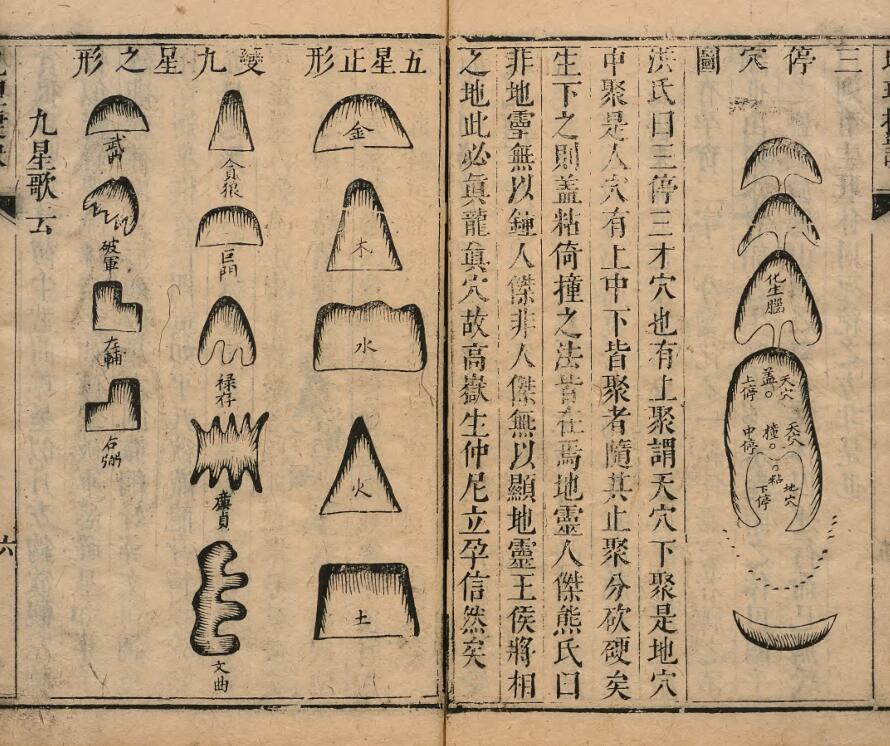 三停穴圖
化生腦
天穴
盖
上停
撞
中停
粘
地穴
下停
洪氏曰三停三才穴也有上聚謂天穴下聚是地穴
中聚是人穴有上中下皆聚者隨其止聚分砍硬矣
生下之則盖粘倚撞之法皆在焉地靈人傑熊氏曰
非地靈無以鐘人傑非人傑無以顯地靈王侯將相
之地此必眞龍眞穴故高嶽生仲尼立孕信然矣
五星正形
金
木
水
火
土
變九星之形
貪狼
巨門
禄存
廉貞
文曲
武曲
破軍
左輔
右弼
九星歌云
六